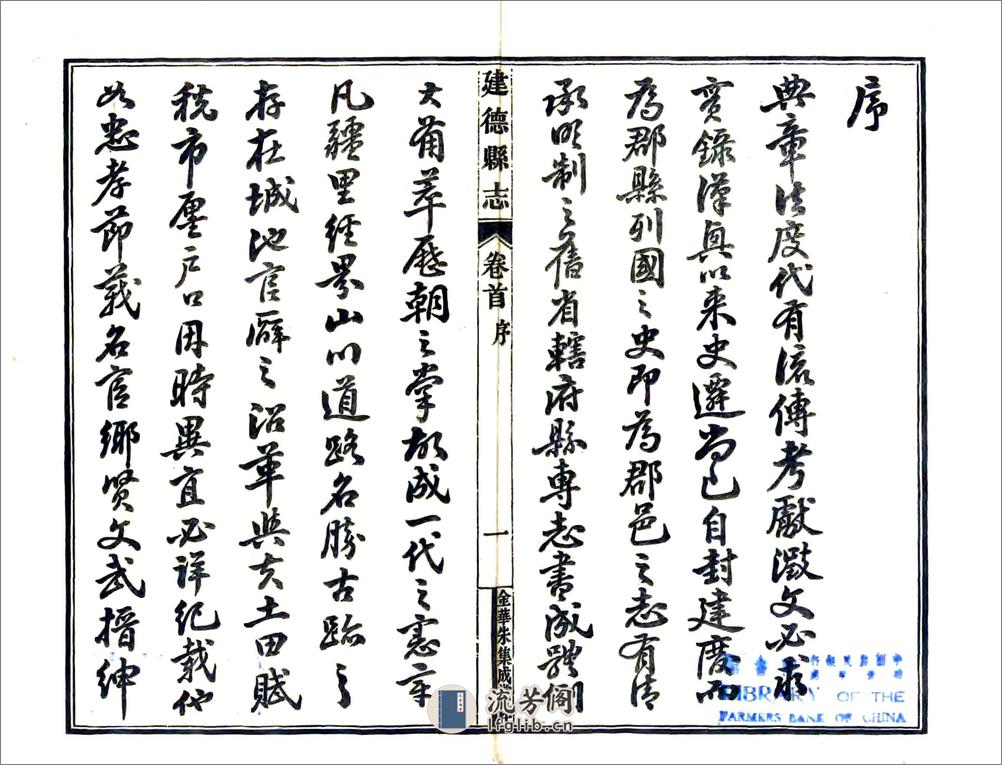 序
典章法度代有流傳考獻徵文必求
實錄漢興以來史遷尚已自封建廢而
為郡縣列國之史即為郡邑之志有清
承明制之舊省轄府縣專志書成體例
大備萃歷朝之掌故成一代之憲章
凡疆里經界山川道路名勝古蹟之
存在城池官廨之沿革與夫土田賦
稅市廛戶口因時異宜必詳紀載他
如忠孝節義名宦鄉賢文武搢紳
建德縣志
卷首
序
一
金華朱集成堂
LIBRARY OF THE
FARMERS BANK OF CHINA
流芳阁
lfglib.cn